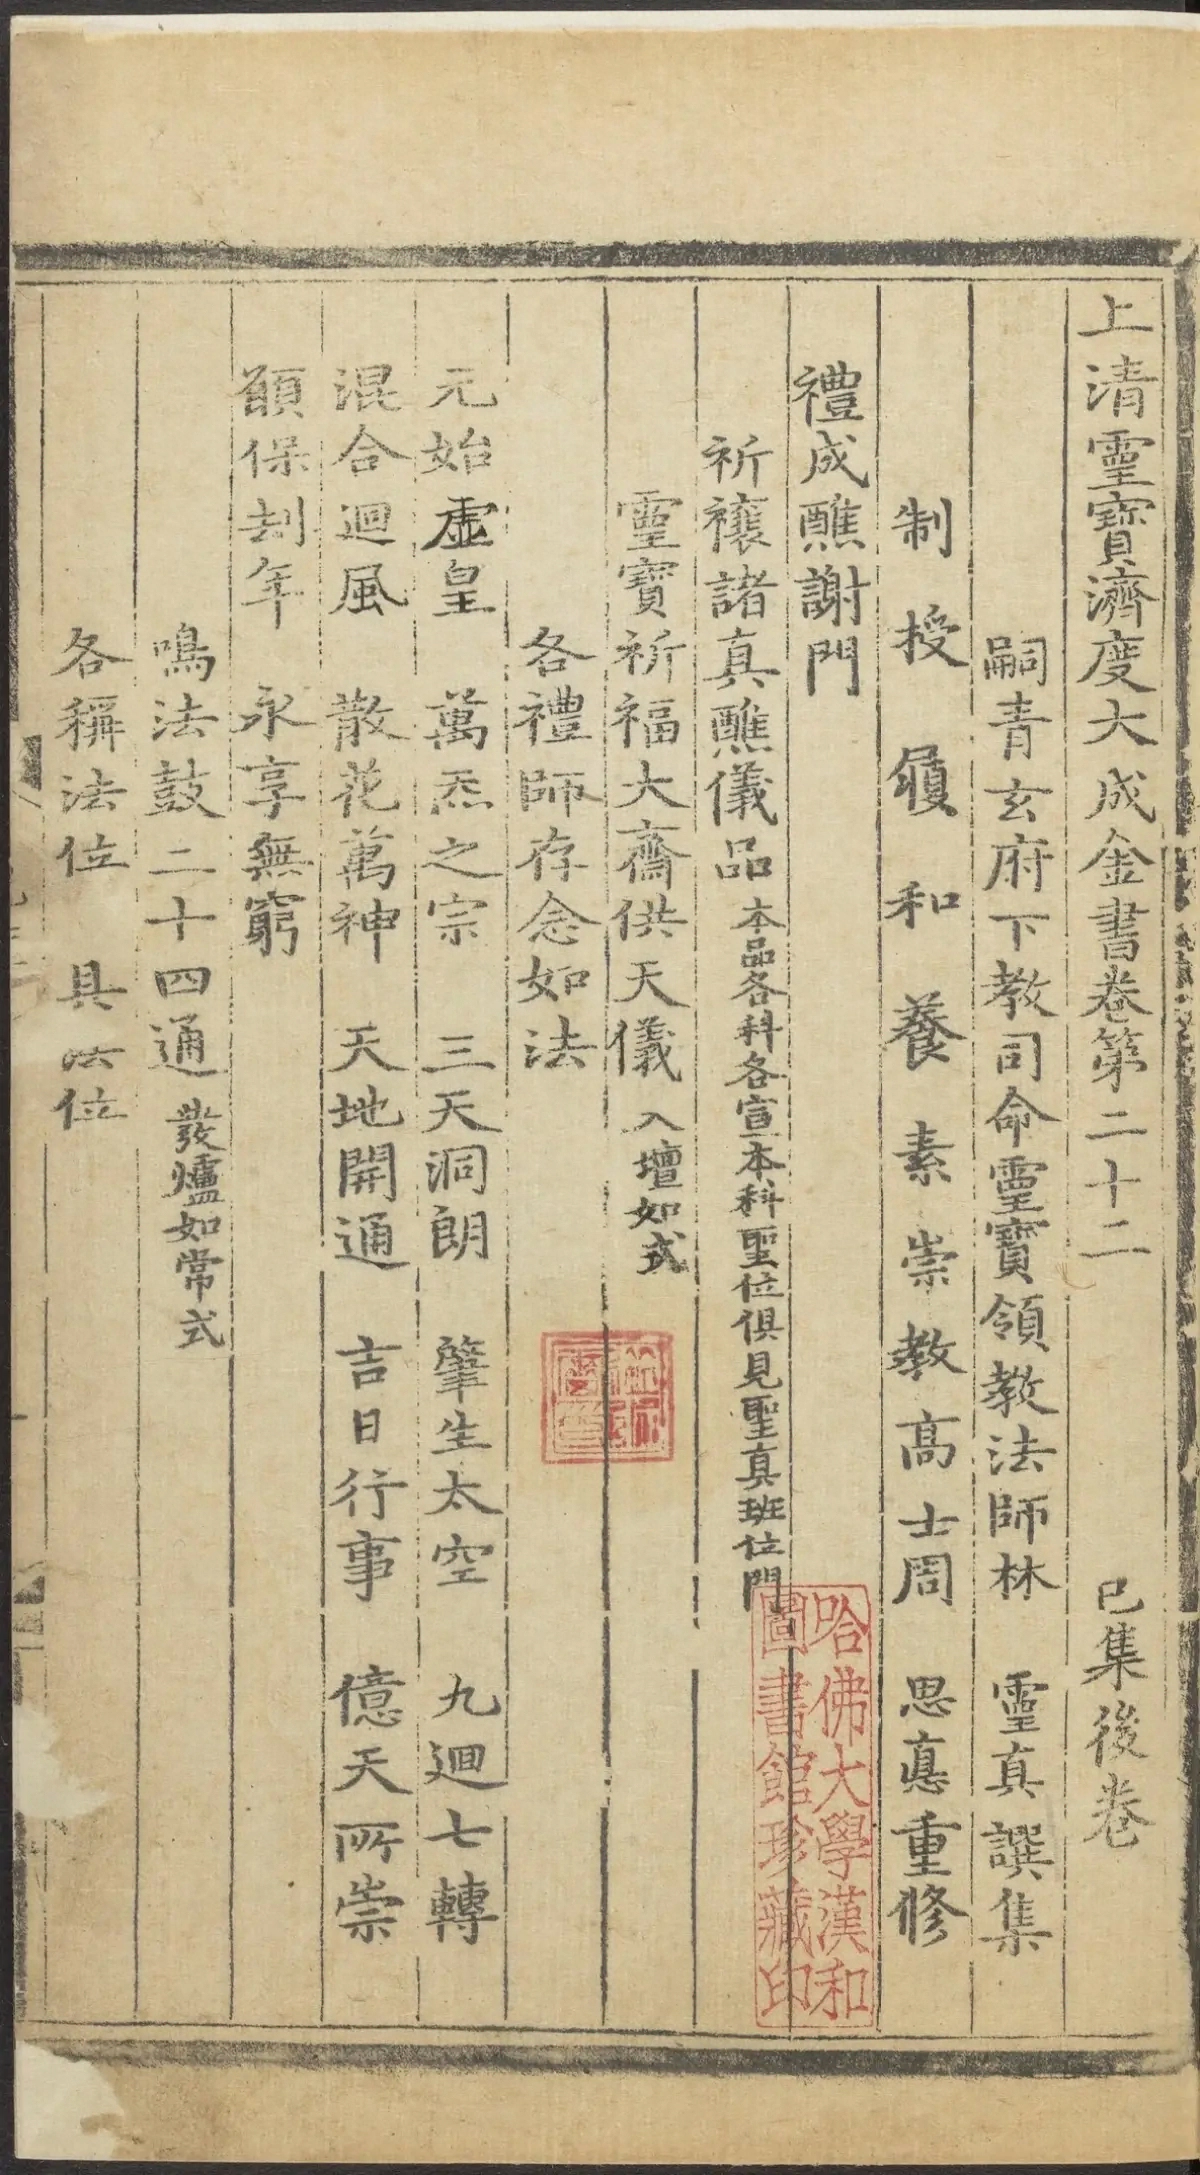 上清靈寶濟度大成金書卷第二十二 巳集後卷
嗣青玄府下教司命靈寶領教法師林 靈真譔集
制授履和養素崇教高士周 思惪重修
禮成醮謝門
祈禳諸真醮儀品 本品各科各宣本科聖位俱見聖真班位門
靈寶祈福大齋供天儀 入壇如式
各禮師存念如法
元始虛皇 萬炁之宗 三天洞朗 肇生太空 九迴七轉
混合迴風 散花萬神 天地開通 吉日行事 億天所崇
願保刼年 永享無窮
鳴法鼓二十四通 發爐如常式
各稱法位 具法位
哈佛大學漢和
圖書館珍藏印